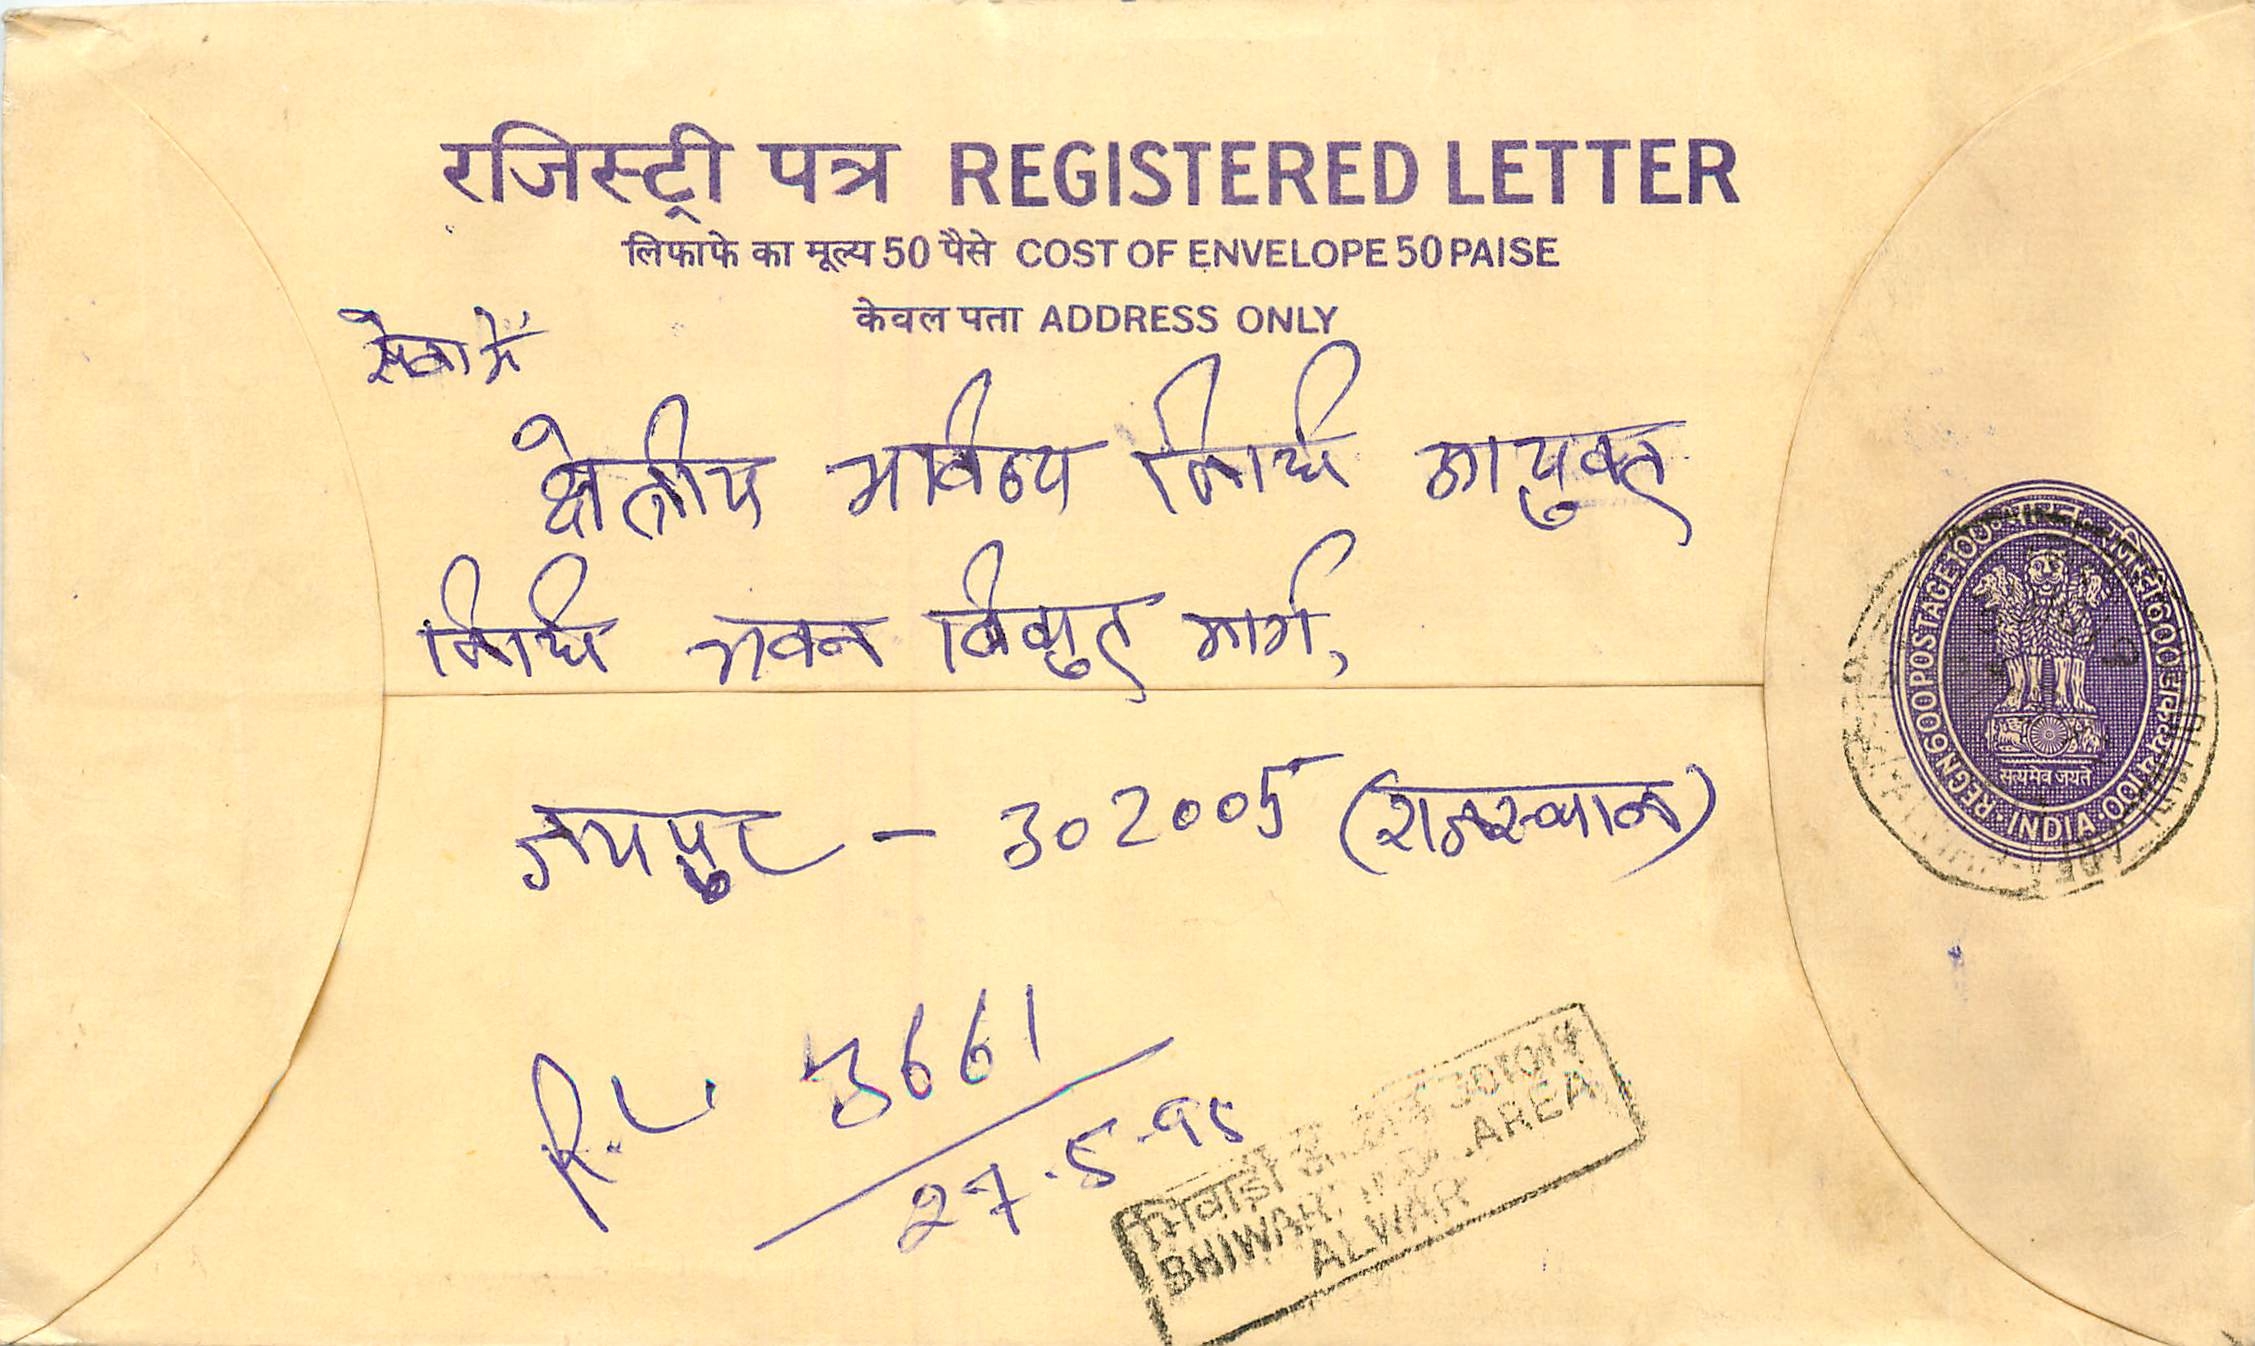 रजिस्ट्री पत्र REGISTERED LETTER
लिफाफे का मूल्य 50 पैसे COST OF ENVELOPE 50 PAISE
केवल पता ADDRESS ONLY
सेवा में
क्षेत्रीय भविष्य निधि आयुक्त
निधि भवन विद्युत मार्ग,
जयपुर - 302005 (राजस्थान)
REGN 600 POSTAGE 100
INDIA
सत्यमेव जयते
R.L. 3661
27-5-95
भिवाड़ी 301019
BHIWADI IND. AREA
ALWAR